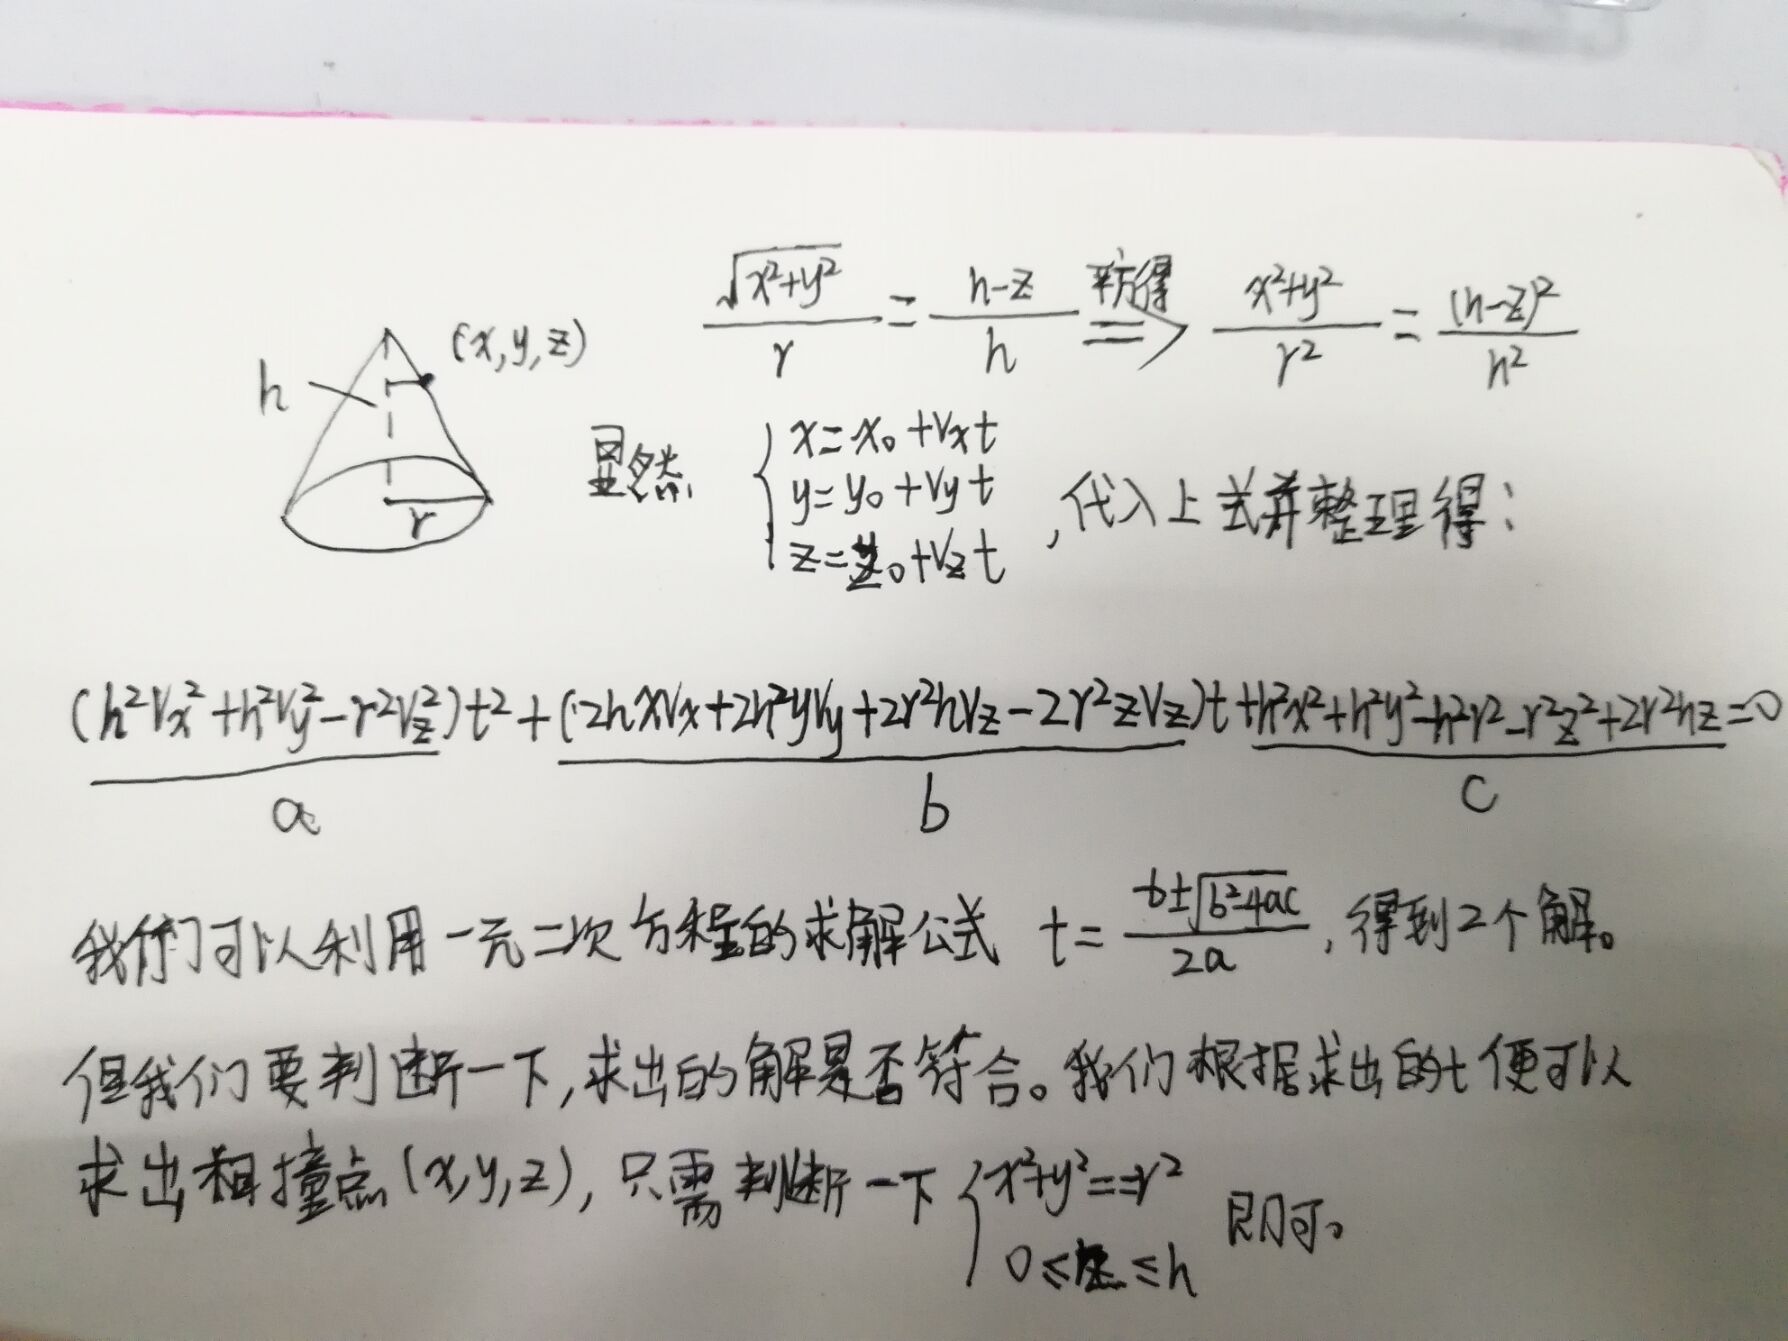 √(x²+y²)/r = (h-z)/h 平方得⟹ (x²+y²)/r² = (h-z)²/h²
(x,y,z)
h
r
显然, { x=x₀+Vxt
y=y₀+Vyt
z=z₀+Vzt ,代入上式并整理得:
(h²Vx²+h²Vy²-r²Vz²)t²+(2hxVx+2h²yVy+2r²hVz-2r²zVz)t+h²x²+h²y²-h²r²-r²z²+2r²hz=0
a b c
我们可以利用一元二次方程的求解公式 t=(-b±√(b²-4ac))/2a,得到2个解。
但我们要判断一下,求出的解是否符合。我们根据求出的t便可以
求出相撞点(x,y,z),只需判断一下{ x²+y²==r² 即可。
0≤z≤h